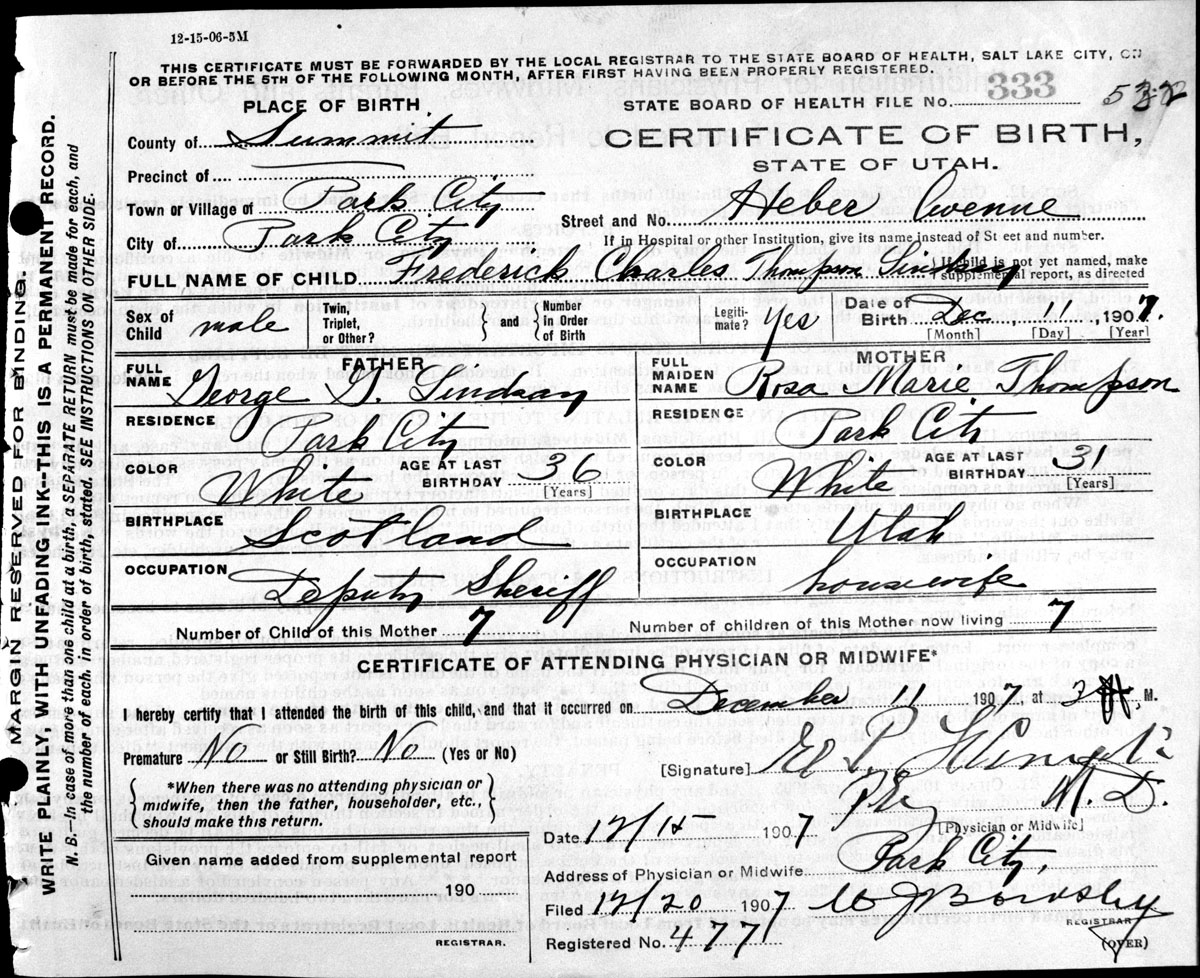 12-15-06-5M
THIS CERTIFICATE MUST BE FORWARDED BY THE LOCAL REGISTRAR TO THE STATE BOARD OF HEALTH, SALT LAKE CITY, ON
OR BEFORE THE 5TH OF THE FOLLOWING MONTH, AFTER FIRST HAVING BEEN PROPERLY REGISTERED.
PLACE OF BIRTH
STATE BOARD OF HEALTH FILE No. 333
County of Summit
CERTIFICATE OF BIRTH,
STATE OF UTAH.
Precinct of
Town or Village of Park City
Street and No. Heber Avenue
City of Park City
If in Hospital or other Institution, give its name instead of St eet and number.
FULL NAME OF CHILD Frederick Charles Thompson Lindsay
If child is not yet named, make
supplemental report, as directed
Sex of
Child male
Twin,
Triplet,
or Other?
and
Number
in Order
of Birth
Legiti-
mate? Yes
Date of
Birth Dec, 11, 1907.
[Month] [Day] [Year]
FATHER
FULL
NAME George G. Lindsay
RESIDENCE
Park City
COLOR White
AGE AT LAST
BIRTHDAY 36
[Years]
BIRTHPLACE
Scotland
OCCUPATION
Deputy Sheriff
MOTHER
FULL
MAIDEN
NAME Rosa Marie Thompson
RESIDENCE
Park City
COLOR White
AGE AT LAST
BIRTHDAY 31
[Years]
BIRTHPLACE
Utah
OCCUPATION
housewife
Number of Child of this Mother 7
Number of children of this Mother now living 7
CERTIFICATE OF ATTENDING PHYSICIAN OR MIDWIFE*
I hereby certify that I attended the birth of this child, and that it occurred on December 11 1907, 2 M.
Premature No or Still Birth? No (Yes or No)
[Signature]
M. D.
*When there was no attending physician or
midwife, then the father, householder, etc.,
should make this return.
Date 12/15 1907
[Physician or Midwife]
Given name added from supplemental report
190
REGISTRAR.
Address of Physician or Midwife Park City,
Filed 12/20 1907
REGISTRAR
Registered No. 477
(OVER)
MARGIN RESERVED FOR BINDING.
WRITE PLAINLY, WITH UNFADING INK—THIS IS A PERMANENT RECORD.
N. B.—In case of more than one child at a birth, a SEPARATE RETURN must be made for each, and
the number of each, in order of birth, stated. SEE INSTRUCTIONS ON OTHER SIDE.